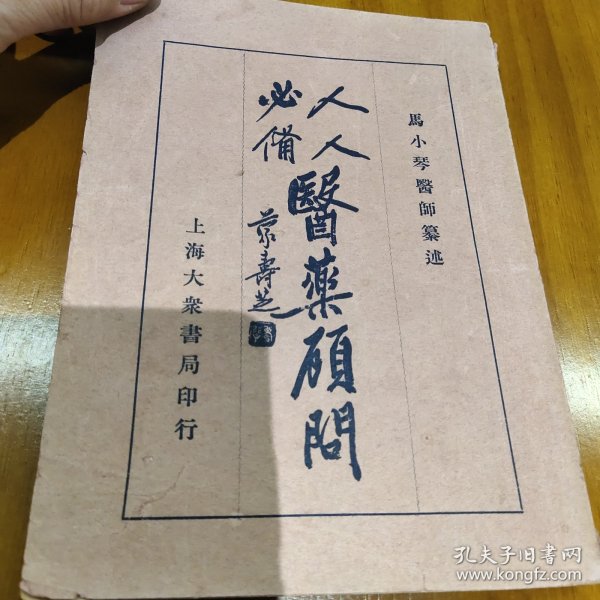 馬小琴醫師纂述
人人
必備
醫藥顧問
蔡壽芝
上海大衆書局印行
孔夫子旧書网
www.kongfz.com